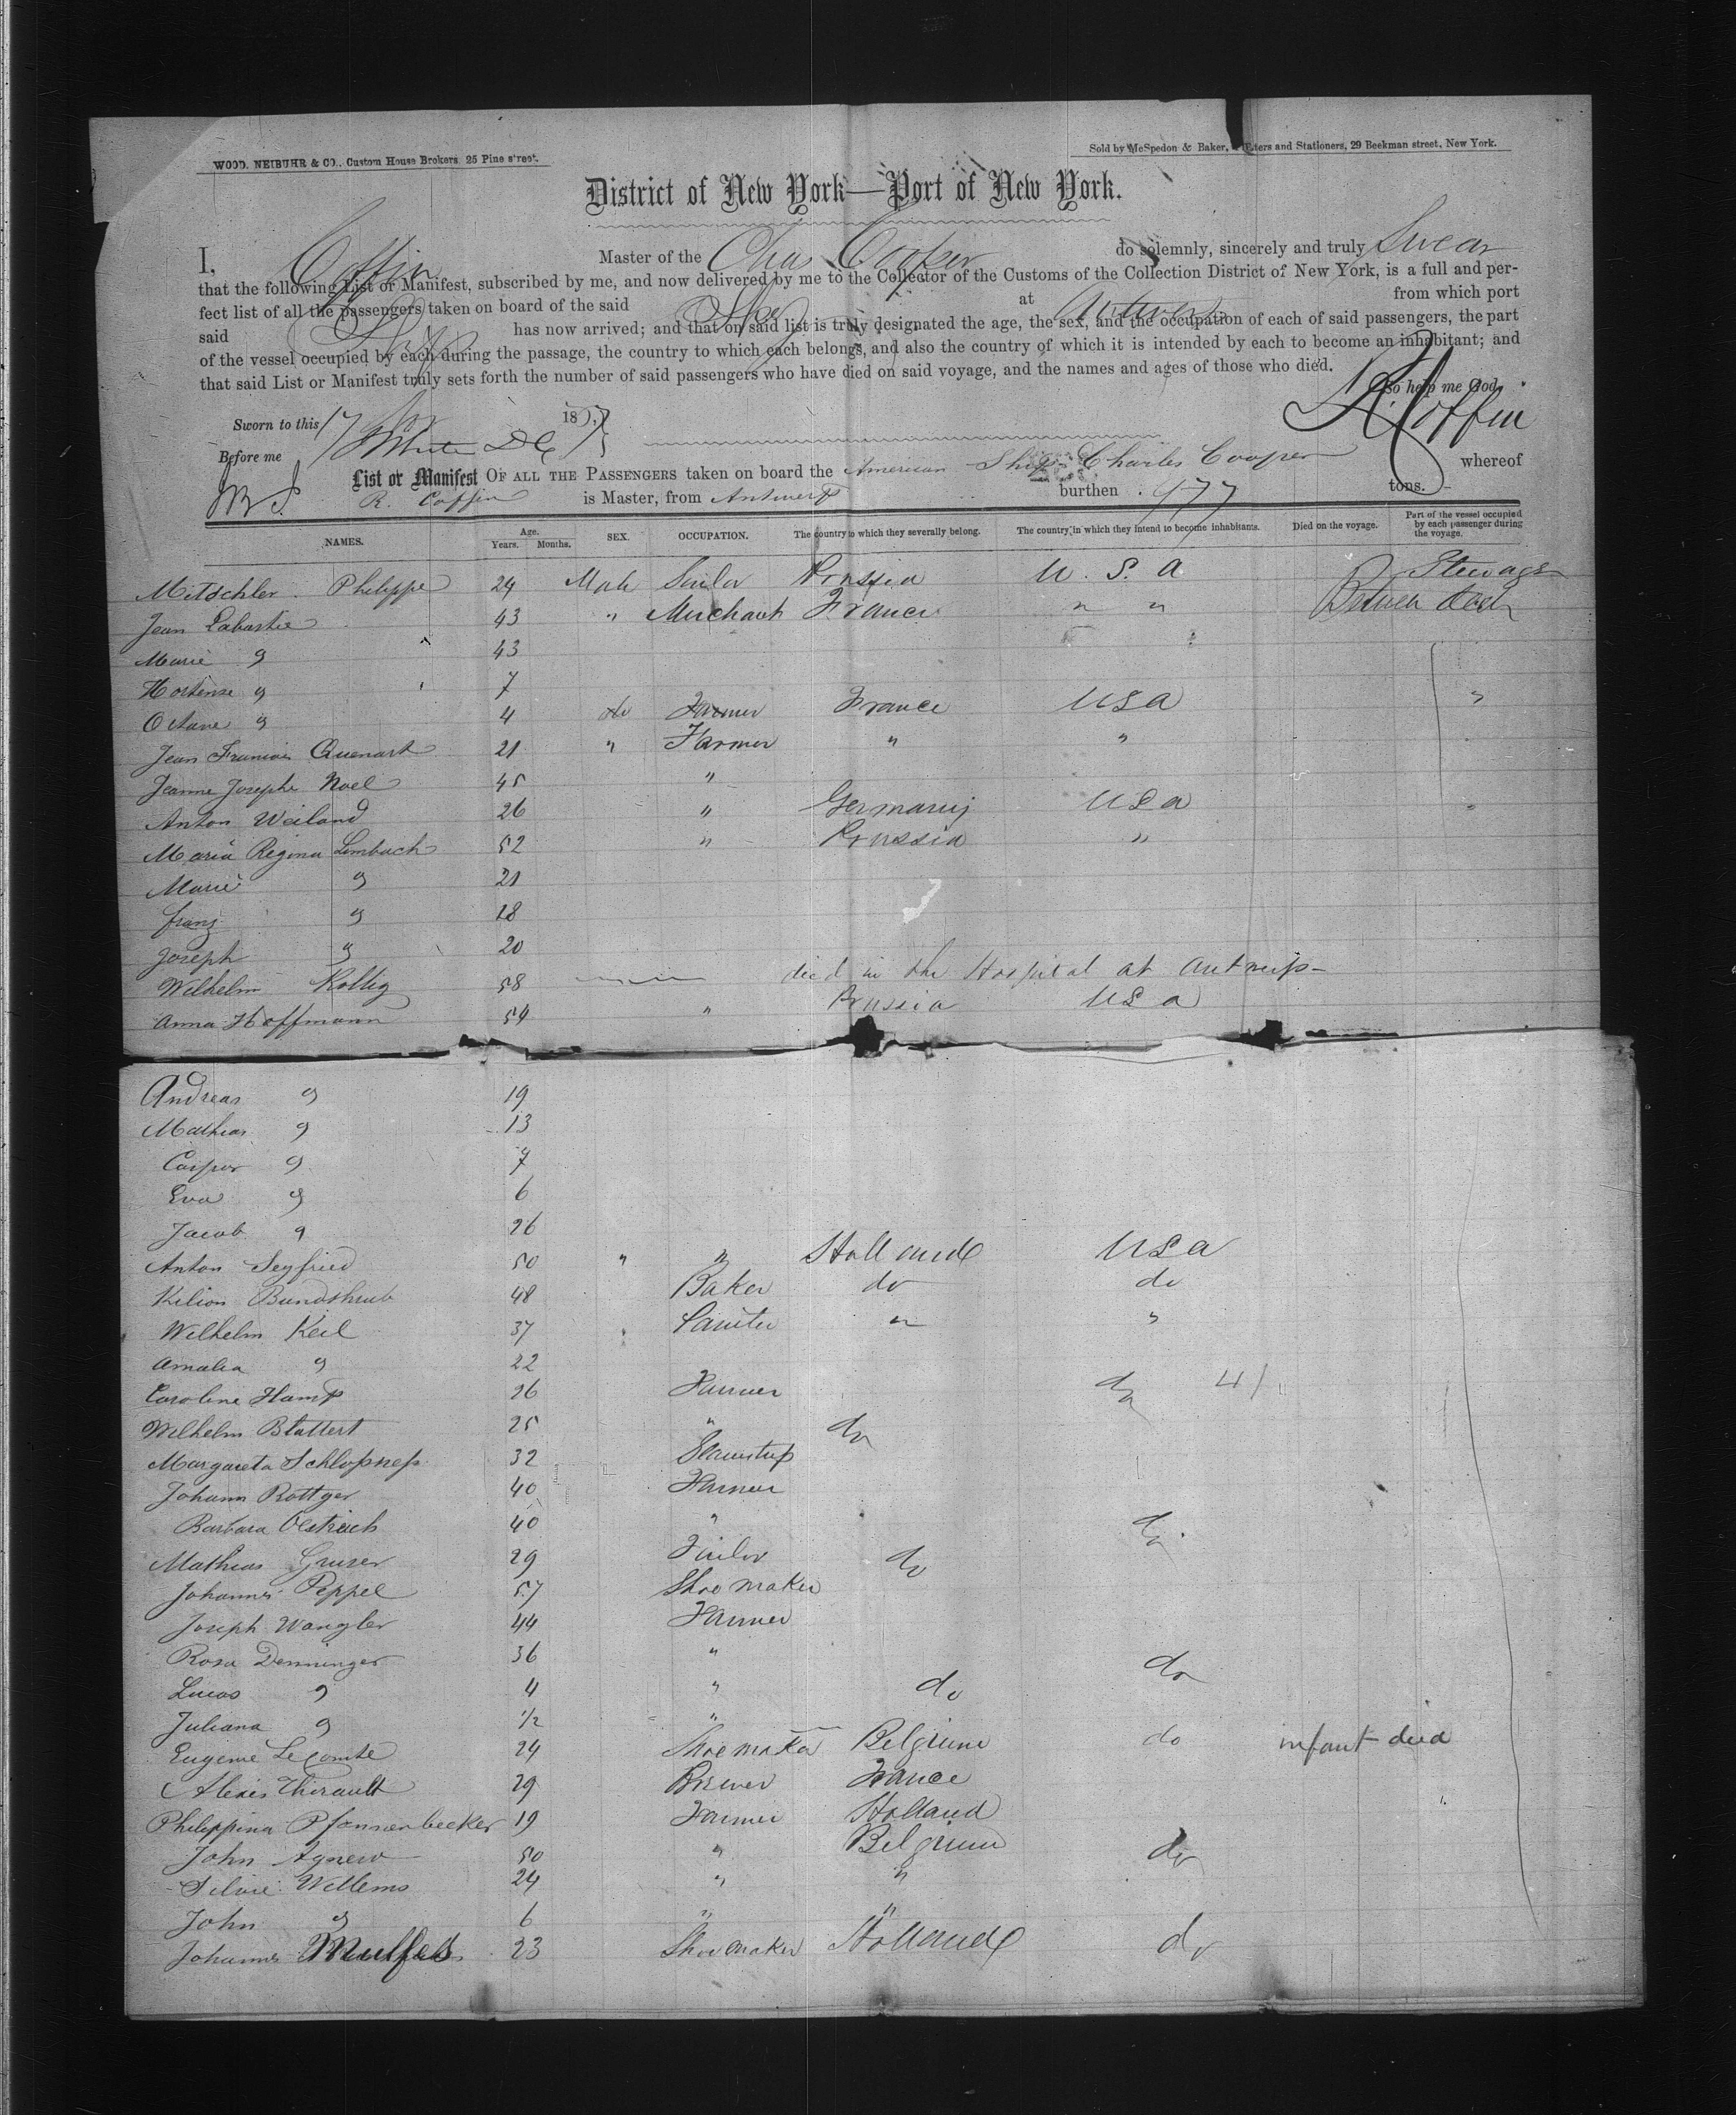 WOOD, NEIBUHR & CO., Custom House Brokers, 25 Pine street.
Sold by McSpedon & Baker, Printers and Stationers, 29 Beekman street, New York.
District of New York—Port of New York.
I, Coffin Master of the Chas Cooper do solemnly, sincerely and truly Swear
that the following List or Manifest, subscribed by me, and now delivered by me to the Collector of the Customs of the Collection District of New York, is a full and per-
fect list of all the passengers taken on board of the said Ship at Antwerp from which port
said Ship has now arrived; and that on said list is truly designated the age, the sex, and the occupation of each of said passengers, the part
of the vessel occupied by each during the passage, the country to which each belongs, and also the country of which it is intended by each to become an inhabitant; and
that said List or Manifest truly sets forth the number of said passengers who have died on said voyage, and the names and ages of those who died.
So help me God.
Sworn to this 17 185
R Coffin
Before me White DC
List or Manifest OF ALL THE PASSENGERS taken on board the American Ship Charles Cooper whereof
R. Coffin is Master, from Antwerp burthen 977 tons.
NAMES. Age. Years. Months. SEX. OCCUPATION. The country to which they severally belong. The country in which they intend to become inhabitants. Died on the voyage. Part of the vessel occupied by each passenger during the voyage.
Mitschler Philippe 24 Male Sailor Prussia U. S. A. Steerage
Jean Labastie 43 " Merchant France " " Between deck
Marie " 43
Hortense " 7
Octave " 4 do Farmer France USA "
Jean Francois Quenart 21 " Farmer " "
Jeanne Josephe Noel 45 "
Anton Weiland 26 " Germany USA "
Maria Regina Limbach 52 " Prussia "
Marie " 21
franz " 18
Joseph " 20
Wilhelm Kollig 58 died in the Hospital at Antwerp
Anna Hoffmann 54 " Prussia USA
Andreas " 19
Mathias " 13
Caspar " 9
Eva " 6
Jacob " 26
Anton Seyfried 50 " " Holland USA
Kilion Bundshuh 48 Baker do do
Wilhelm Keil 37 Painter " "
Amalia " 22
Caroline Hamp 26 Farmer do 41
Wilhelm Blattert 25 " do
Margareta Schlopsnep 32
Johann Rottger 40 Farmer
Barbara Oestreich 40 " do
Mathias Gruser 29 Tailor do
Johannes Peppel 57 Shoemaker
Joseph Wangler 44 Farmer
Rosa Denninger 36 " do
Lucas " 4 " do
Juliana " 1/2 "
Eugeme LeComte 24 Shoemaker Belgium do infant died
Alexis Thirault 29 Brewer France
Philippina Pfannenbecker 19 Farmer Holland
John Agnew 50 " Belgium do
Silvie Willems 24 " "
John " 6 " "
Johannes Mulfels 23 Shoemaker Holland do